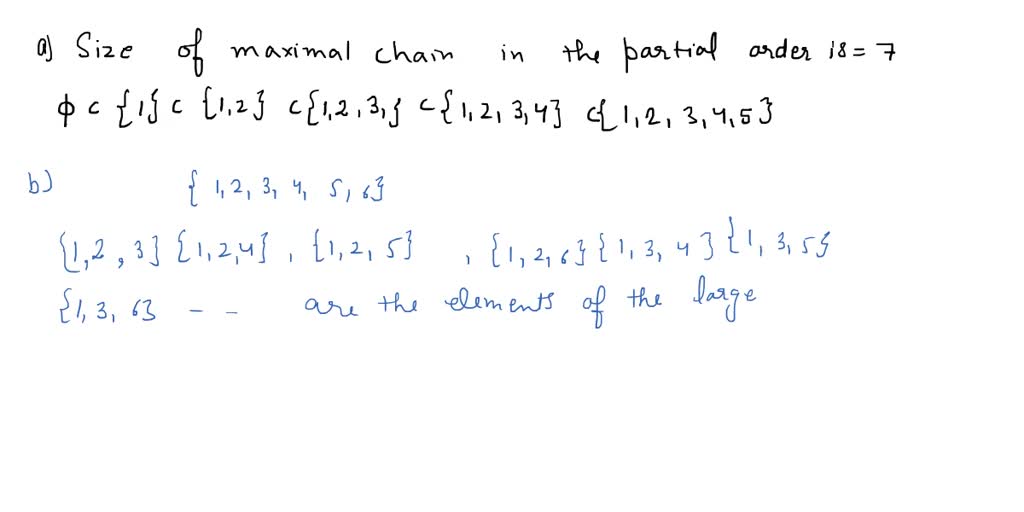 a) Size of maximal chain in the partial order is = 7
ϕ ⊂ {1} ⊂ {1,2} ⊂ {1,2,3,} ⊂ {1,2,3,4} ⊂ {1,2,3,4,5}
b) {1,2,3,4,5,6}
{1,2,3} {1,2,4}, {1,2,5}, {1,2,6} {1,3,4} {1,3,5}
{1,3,6} - - are the elements of the large